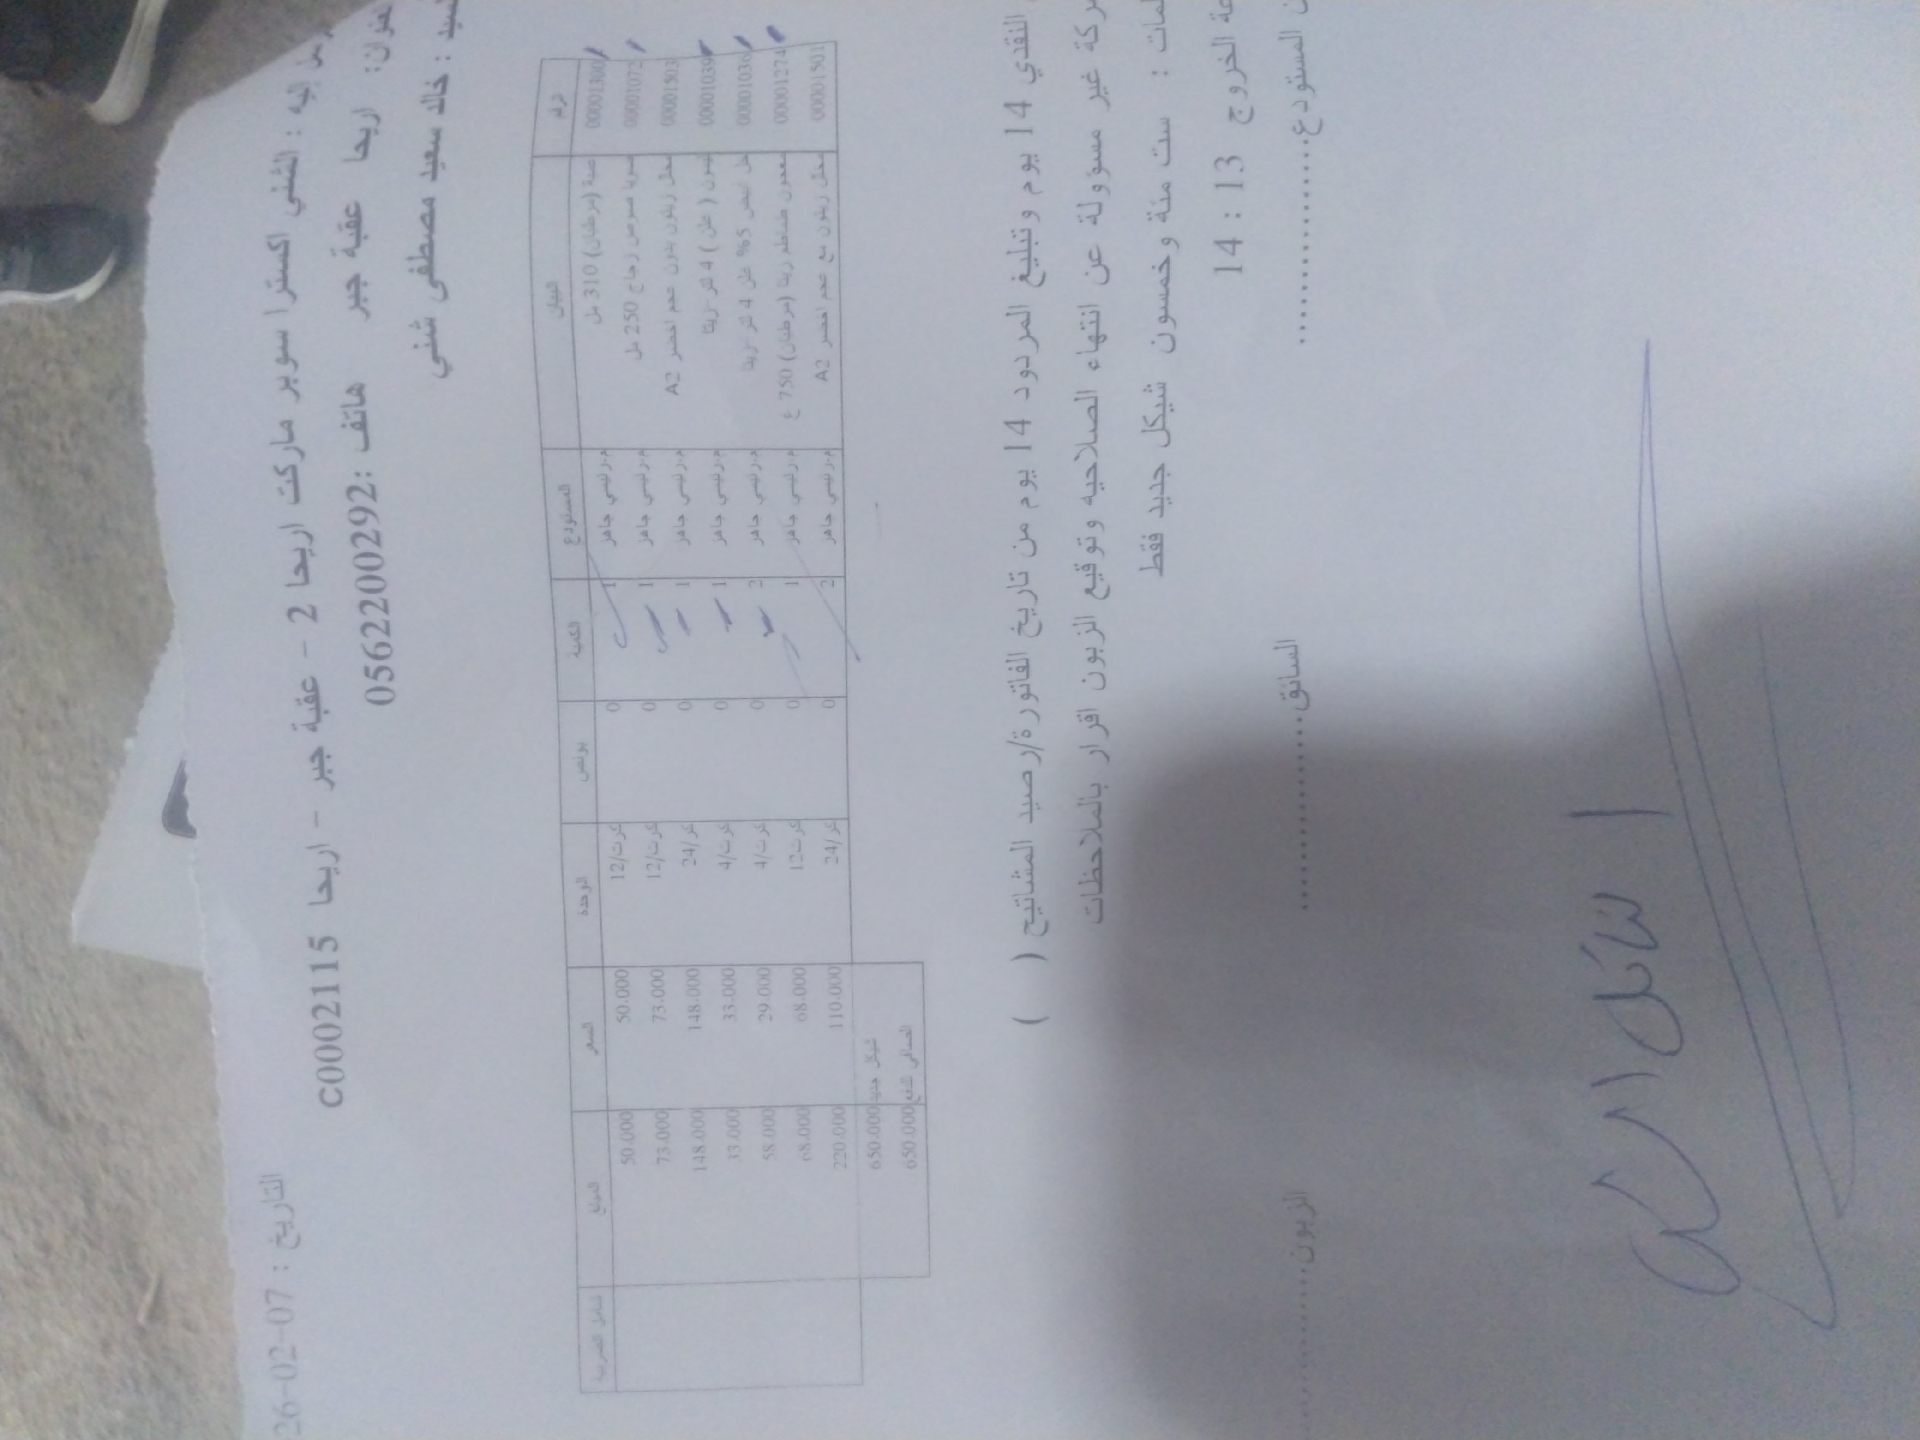 التاريخ : 07-02-26
رسل اليه : الشني اكسترا سوبر ماركت اريحا 2 - عقبة جبر - اريحا C00021115
عنوان: اريحا عقبة جبر هاتف :0562200292
السيد : خالد سعيد مصطفى شني
الرقم البيان المستودع الكمية بونص الوحدة السعر المبلغ شامل الضريبة
00001300 (مرطبان) 310 مل م.رئيسي جاهز 1 0 كرت/12 50.000 50.000
00001072 زجاج 250 مل م.رئيسي جاهز 1 0 كرت/12 73.000 73.000
00001503 مخلل زيتون بدون عجم اخضر A2 م.رئيسي جاهز 1 0 كر/24 148.000 148.000
00001039 ليمون ( غلن ) 4 لتر -زيتا م.رئيسي جاهز 1 0 كرت/4 33.000 33.000
00001036 خل ابيض 5% غلن 4 لتر -زيتا م.رئيسي جاهز 2 0 كرت/4 29.000 58.000
00001274 معجون طماطم زيتا (مرطبان) 750 غ م.رئيسي جاهز 1 0 كرت12 68.000 68.000
00001501 مخلل زيتون مع عجم اخضر A2 م.رئيسي جاهز 2 0 كر/24 110.000 220.000
شيكل جديد 650.000
الصافي للدفع 650.000
النقدي 14 يوم وتبليغ المردود 14 يوم من تاريخ الفاتورة/رصيد المشاتيح ( )
ركة غير مسؤولة عن انتهاء الصلاحيه وتوقيع الزبون اقرار بالملاحظات
لمات : ست مئة وخمسون شيكل جديد فقط
عة الخروج 13 : 14
ن المستودع............ السائق............ الزبون............